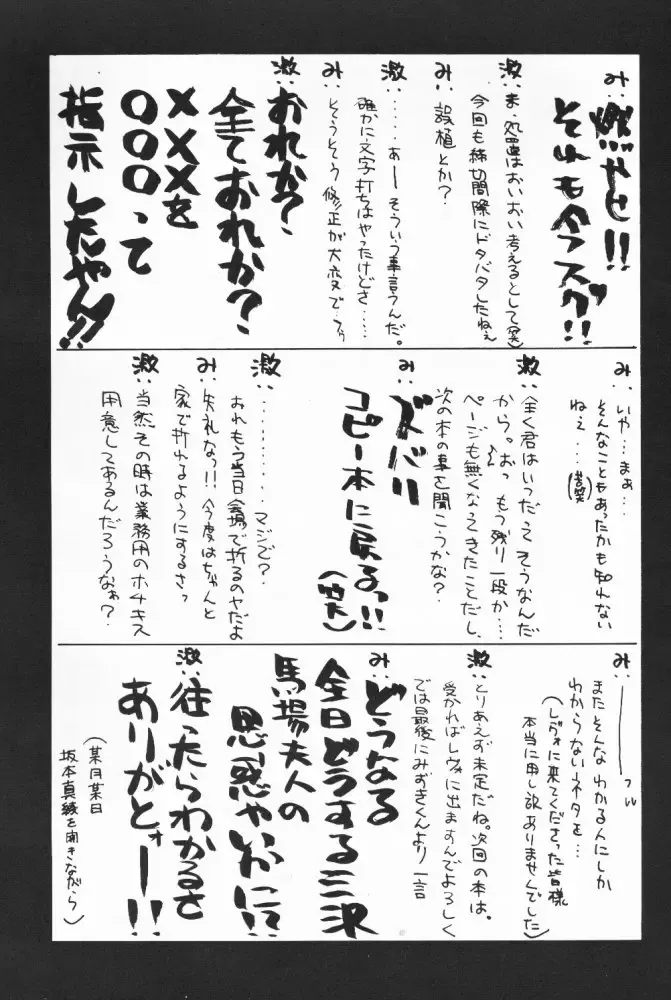 み：燃やせ!!
それも今スグ!!
激：ま、処置はおいおい考えるとして(笑)
今回も締切間際にドタバタしたねぇ
み：誤植とか？
激：……あーそういう事言うんだ。
確かに文字打ちはやったけどさ……
み：そうそう修正が大変で…って
激：おれか？
全ておれか？
×××を
○○○って
指示したやん!!
み：いや…まぁ…
そんなこともあったかも知れない
ねぇ…(苦笑)
激：全く君はいつだってそうなんだ
から。おっもう残り一段か……
ページも無くなってきたことだし、
次の本の事を聞こうかな？
み：ズバリ
コピー本に戻るっ!!
激：…………マジで？
おれもう当日会場で折るのヤだよ
み：失礼なっ!!今度はちゃんと
家で折れるようにするさっ
激：当然その時は業務用のホチキス
用意してあるんだろうなぁ？
み：――――フッ
またそんなわかる人にしか
わからないネタを…
(レヴォに来てくださった皆様
本当に申し訳ありませんでした)
激：とりあえず未定だね。次回の本は。
受かればレヴォに出ますんでよろしく
では最後にみずきくんより一言
み：どうなる
全日どうする三沢
馬場夫人の
思惑やいかに!?
激：往ったらわかるさ
ありがとォー!!
(某月某日
坂本真綾を聞きながら)